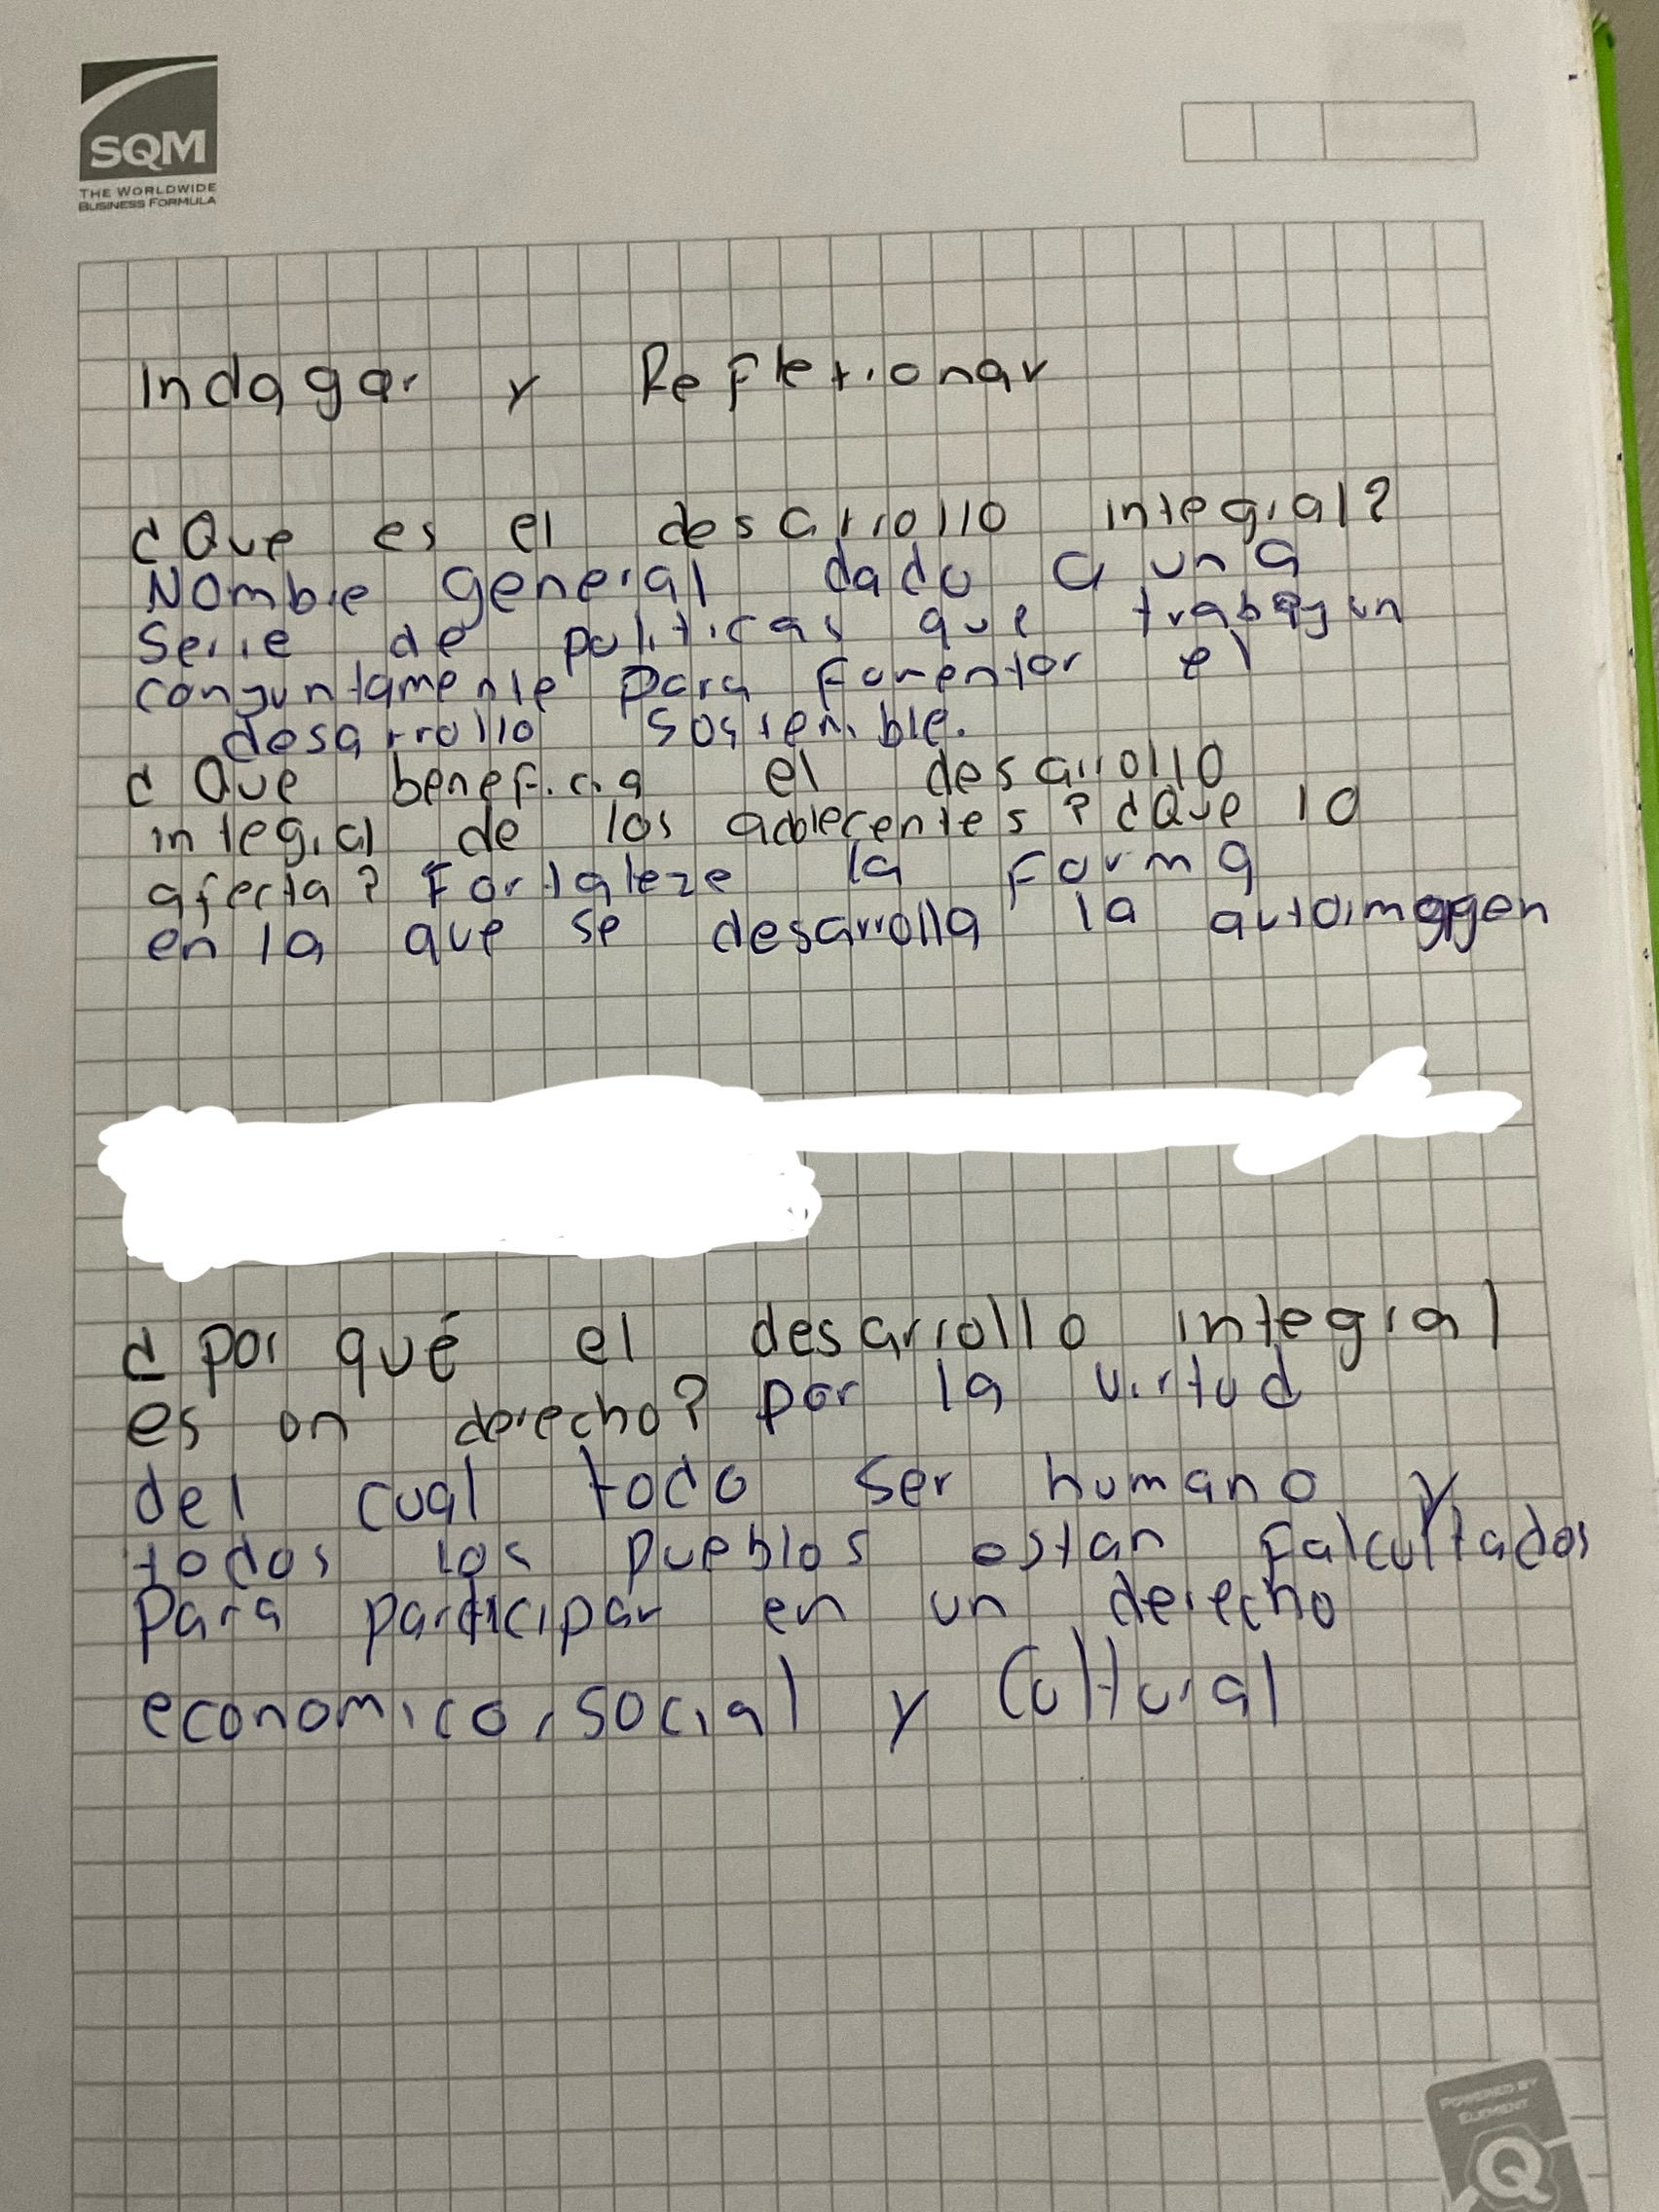 SQM
THE WORLDWIDE
BUSINESS FORMULA
Indagar y Reflexionar
¿Que es el desarrollo integral?
Nombre general dado a una
Serie de politicas que trabajan
conjuntamente para fomentar el
desarrollo sostenible.
¿Que beneficia el desarrollo
integral de los adolecentes? ¿Que lo
afecta? Fortaleze la forma
en la que se desarrolla la autoimagen
¿Por qué el desarrollo integral
es un derecho? por la virtud
del cual todo ser humano y
todos los pueblos estan falcultados
Para participar en un derecho
economico, social y Cultural
POWERED BY
ELEMENT
Q